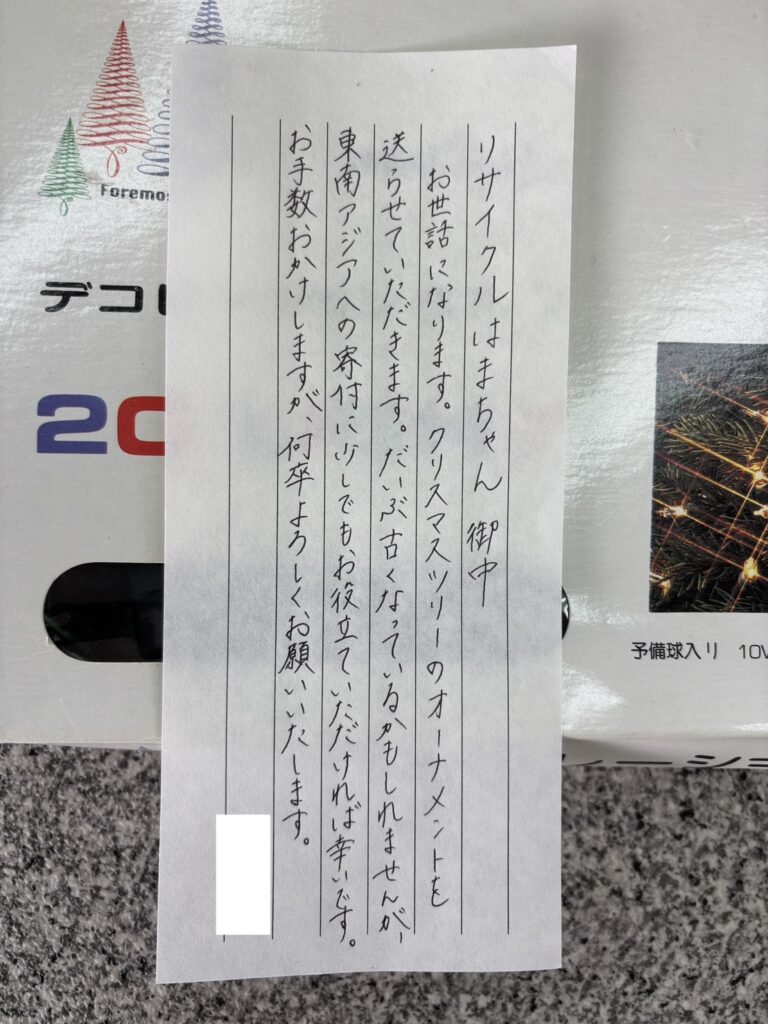 リサイクルはまちゃん 御中
お世話になります。クリスマスツリーのオーナメントを
送らせていただきます。だいぶ古くなっているかもしれませんが、
東南アジアへの寄付に少しでもお役立ていただければ幸いです。
お手数おかけしますが、何卒よろしくお願いいたします。
Foremos
デコレ
20
予備球入り 10V
レーショ